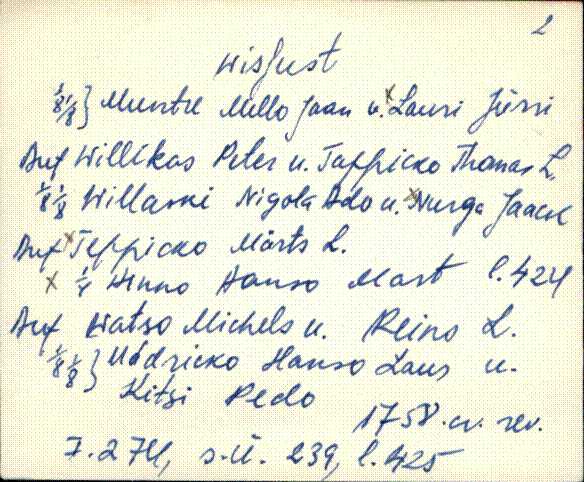 2
Wisjust
1/8 1/8} Muntre Mello Jaan u. x Lauri Jürri
Auf Willikas Peter u. Tappicko Thomas L.
1/8 1/8 Willaski Nigola Ado u. x Nurga Jaack
Auf x Teppicko Märts L.
x 1/4 Winno Hanso Mart l. 424
Auf Watso Michels u. Reino L.
1/8 1/8} Hanso Laus u.
Kitsi Pedo
1758. a. rev.
F. 274, s.-ü. 239, l. 425